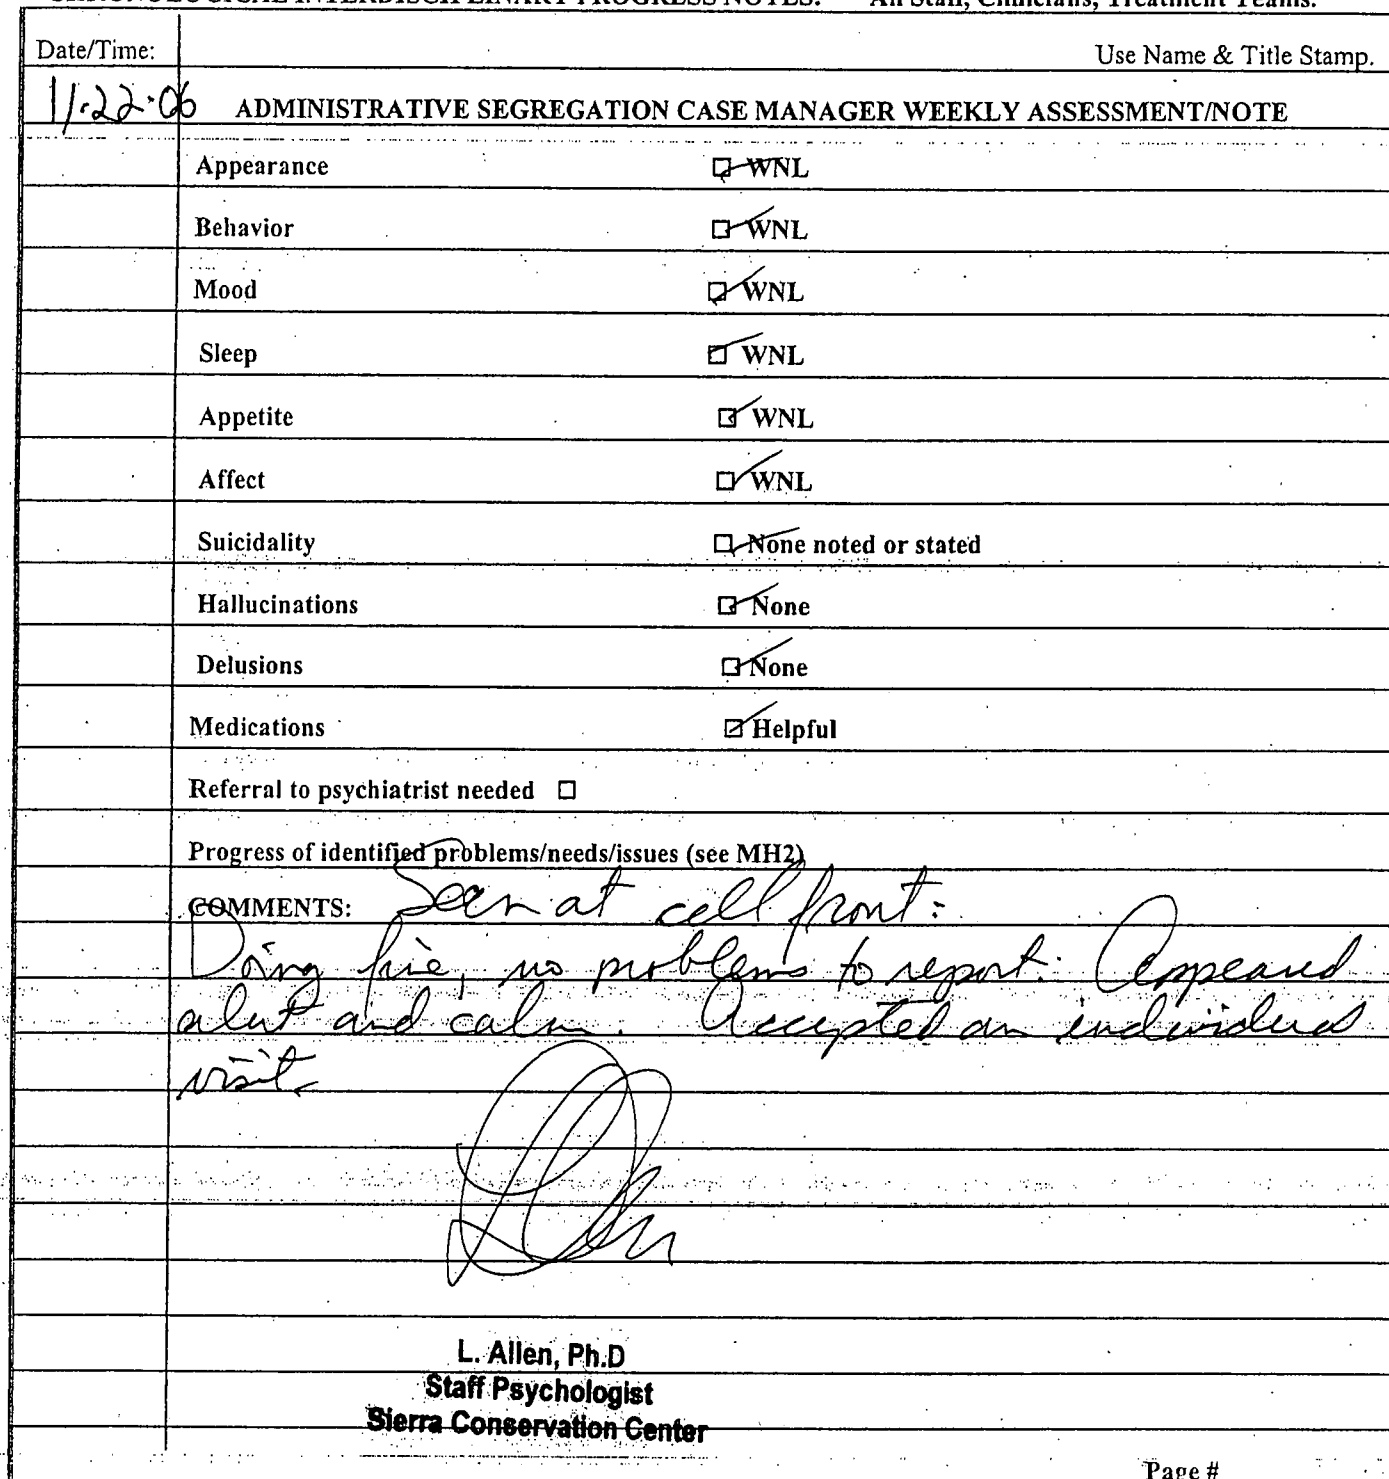 CHRONOLOGICAL INTERDISCIPLINARY PROGRESS NOTES. All Staff, Clinicians, Treatment Teams.
Date/Time: Use Name & Title Stamp.
11-22-06 ADMINISTRATIVE SEGREGATION CASE MANAGER WEEKLY ASSESSMENT/NOTE
Appearance WNL
Behavior WNL
Mood WNL
Sleep WNL
Appetite WNL
Affect WNL
Suicidality None noted or stated
Hallucinations None
Delusions None
Medications Helpful
Referral to psychiatrist needed
Progress of identified problems/needs/issues (see MH2)
COMMENTS: Seen at cell front:
Doing fine, no problems to report. Appeared
alert and calm. Accepted an individual
visit.
L. Allen, Ph.D
Staff Psychologist
Sierra Conservation Center
Page #